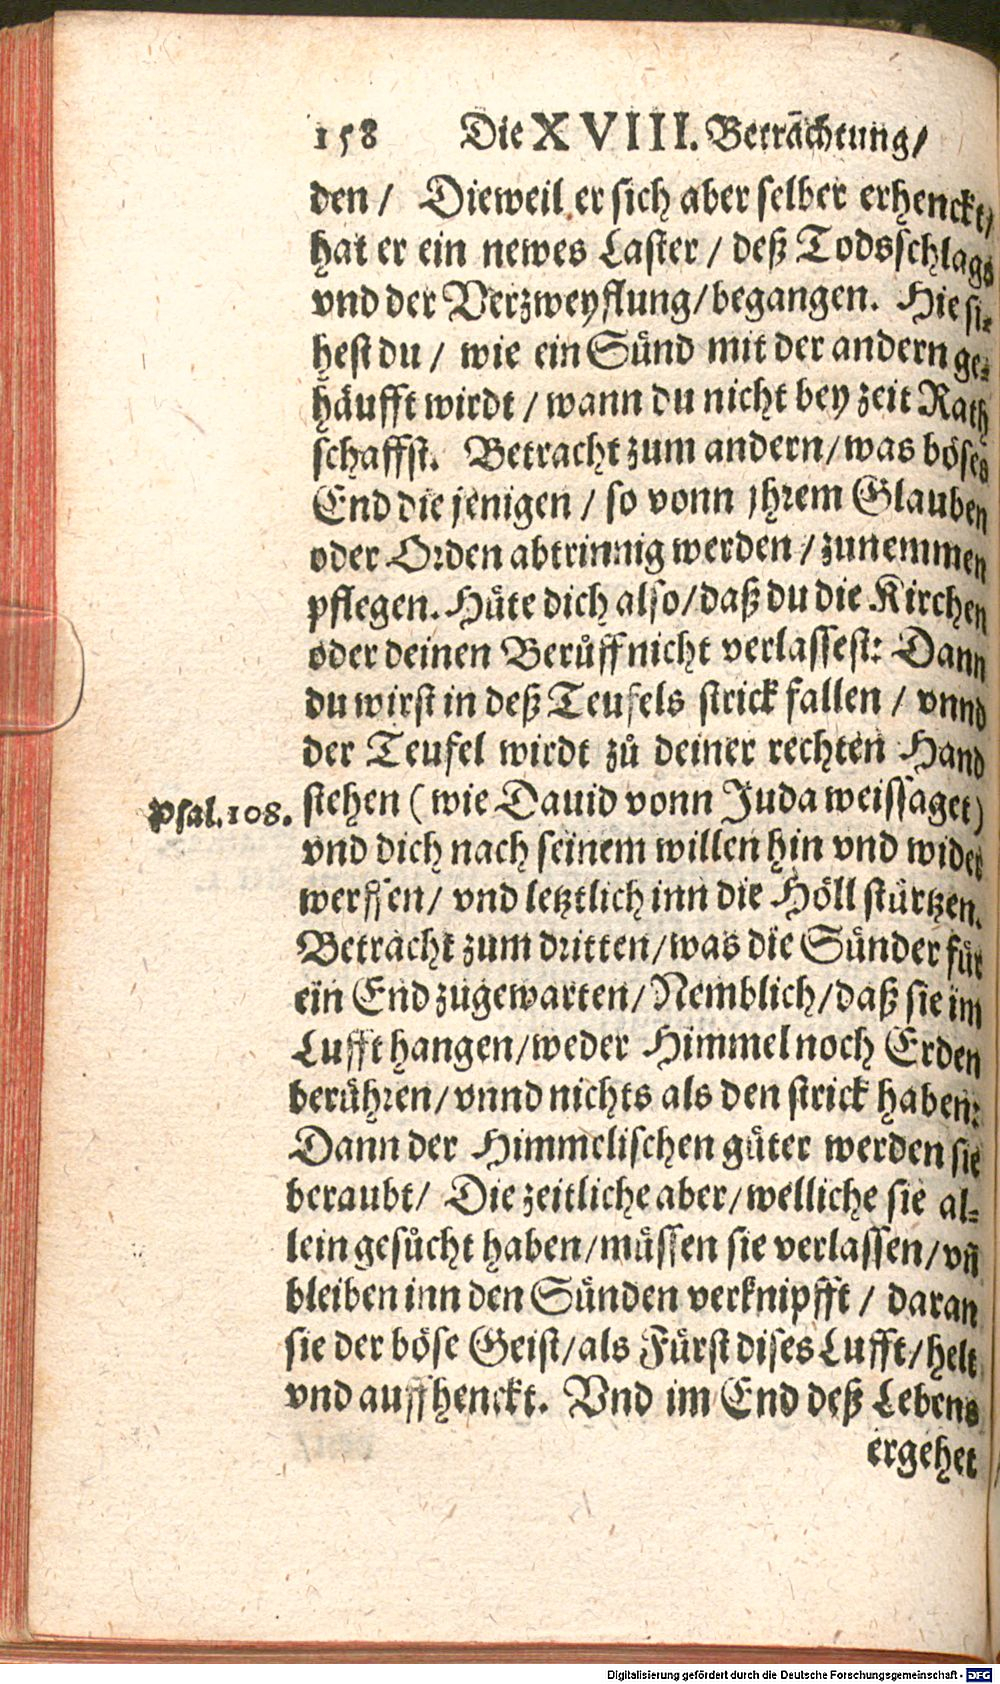 158 Die XVIII. Beträchtung/
den / Dieweil er sich aber selber erhenckt/
hat er ein newes Laster / deß Todsschlags
vnd der Verzweyflung/begangen. Hie si-
hest du / wie ein Sünd mit der andern ge-
häufft wirdt / wann du nicht bey zeit Rath
schaffst. Betracht zum andern/was böses
End die jenigen / so vonn jhrem Glauben
oder Orden abtrinnig werden / zunemmen
pflegen. Hüte dich also/daß du die Kirchen
oder deinen Berůff nicht verlassest: Dann
du wirst in deß Teufels strick fallen / vnnd
der Teufel wirdt zů deiner rechten Hand
Psal.108. stehen (wie Dauid vonn Juda weissaget)
vnd dich nach seinem willen hin vnd wider
werffen/ vnd letztlich inn die Höll stürtzen.
Betracht zum dritten/was die Sünder für
ein End zugewarten/Nemblich/daß sie im
Lufft hangen/weder Himmel noch Erden
berühren/vnnd nichts als den strick haben:
Dann der Himmelischen güter werden sie
beraubt/ Die zeitliche aber/welliche sie al-
lein gesůcht haben/müssen sie verlassen/vñ
bleiben inn den Sünden verknipfft / daran
sie der böse Geist/als Fürst dises Lufft/helt
vnd auffhenckt. Vnd im End deß Lebens
ergehet
Digitalisierung gefördert durch die Deutsche Forschungsgemeinschaft - DFG